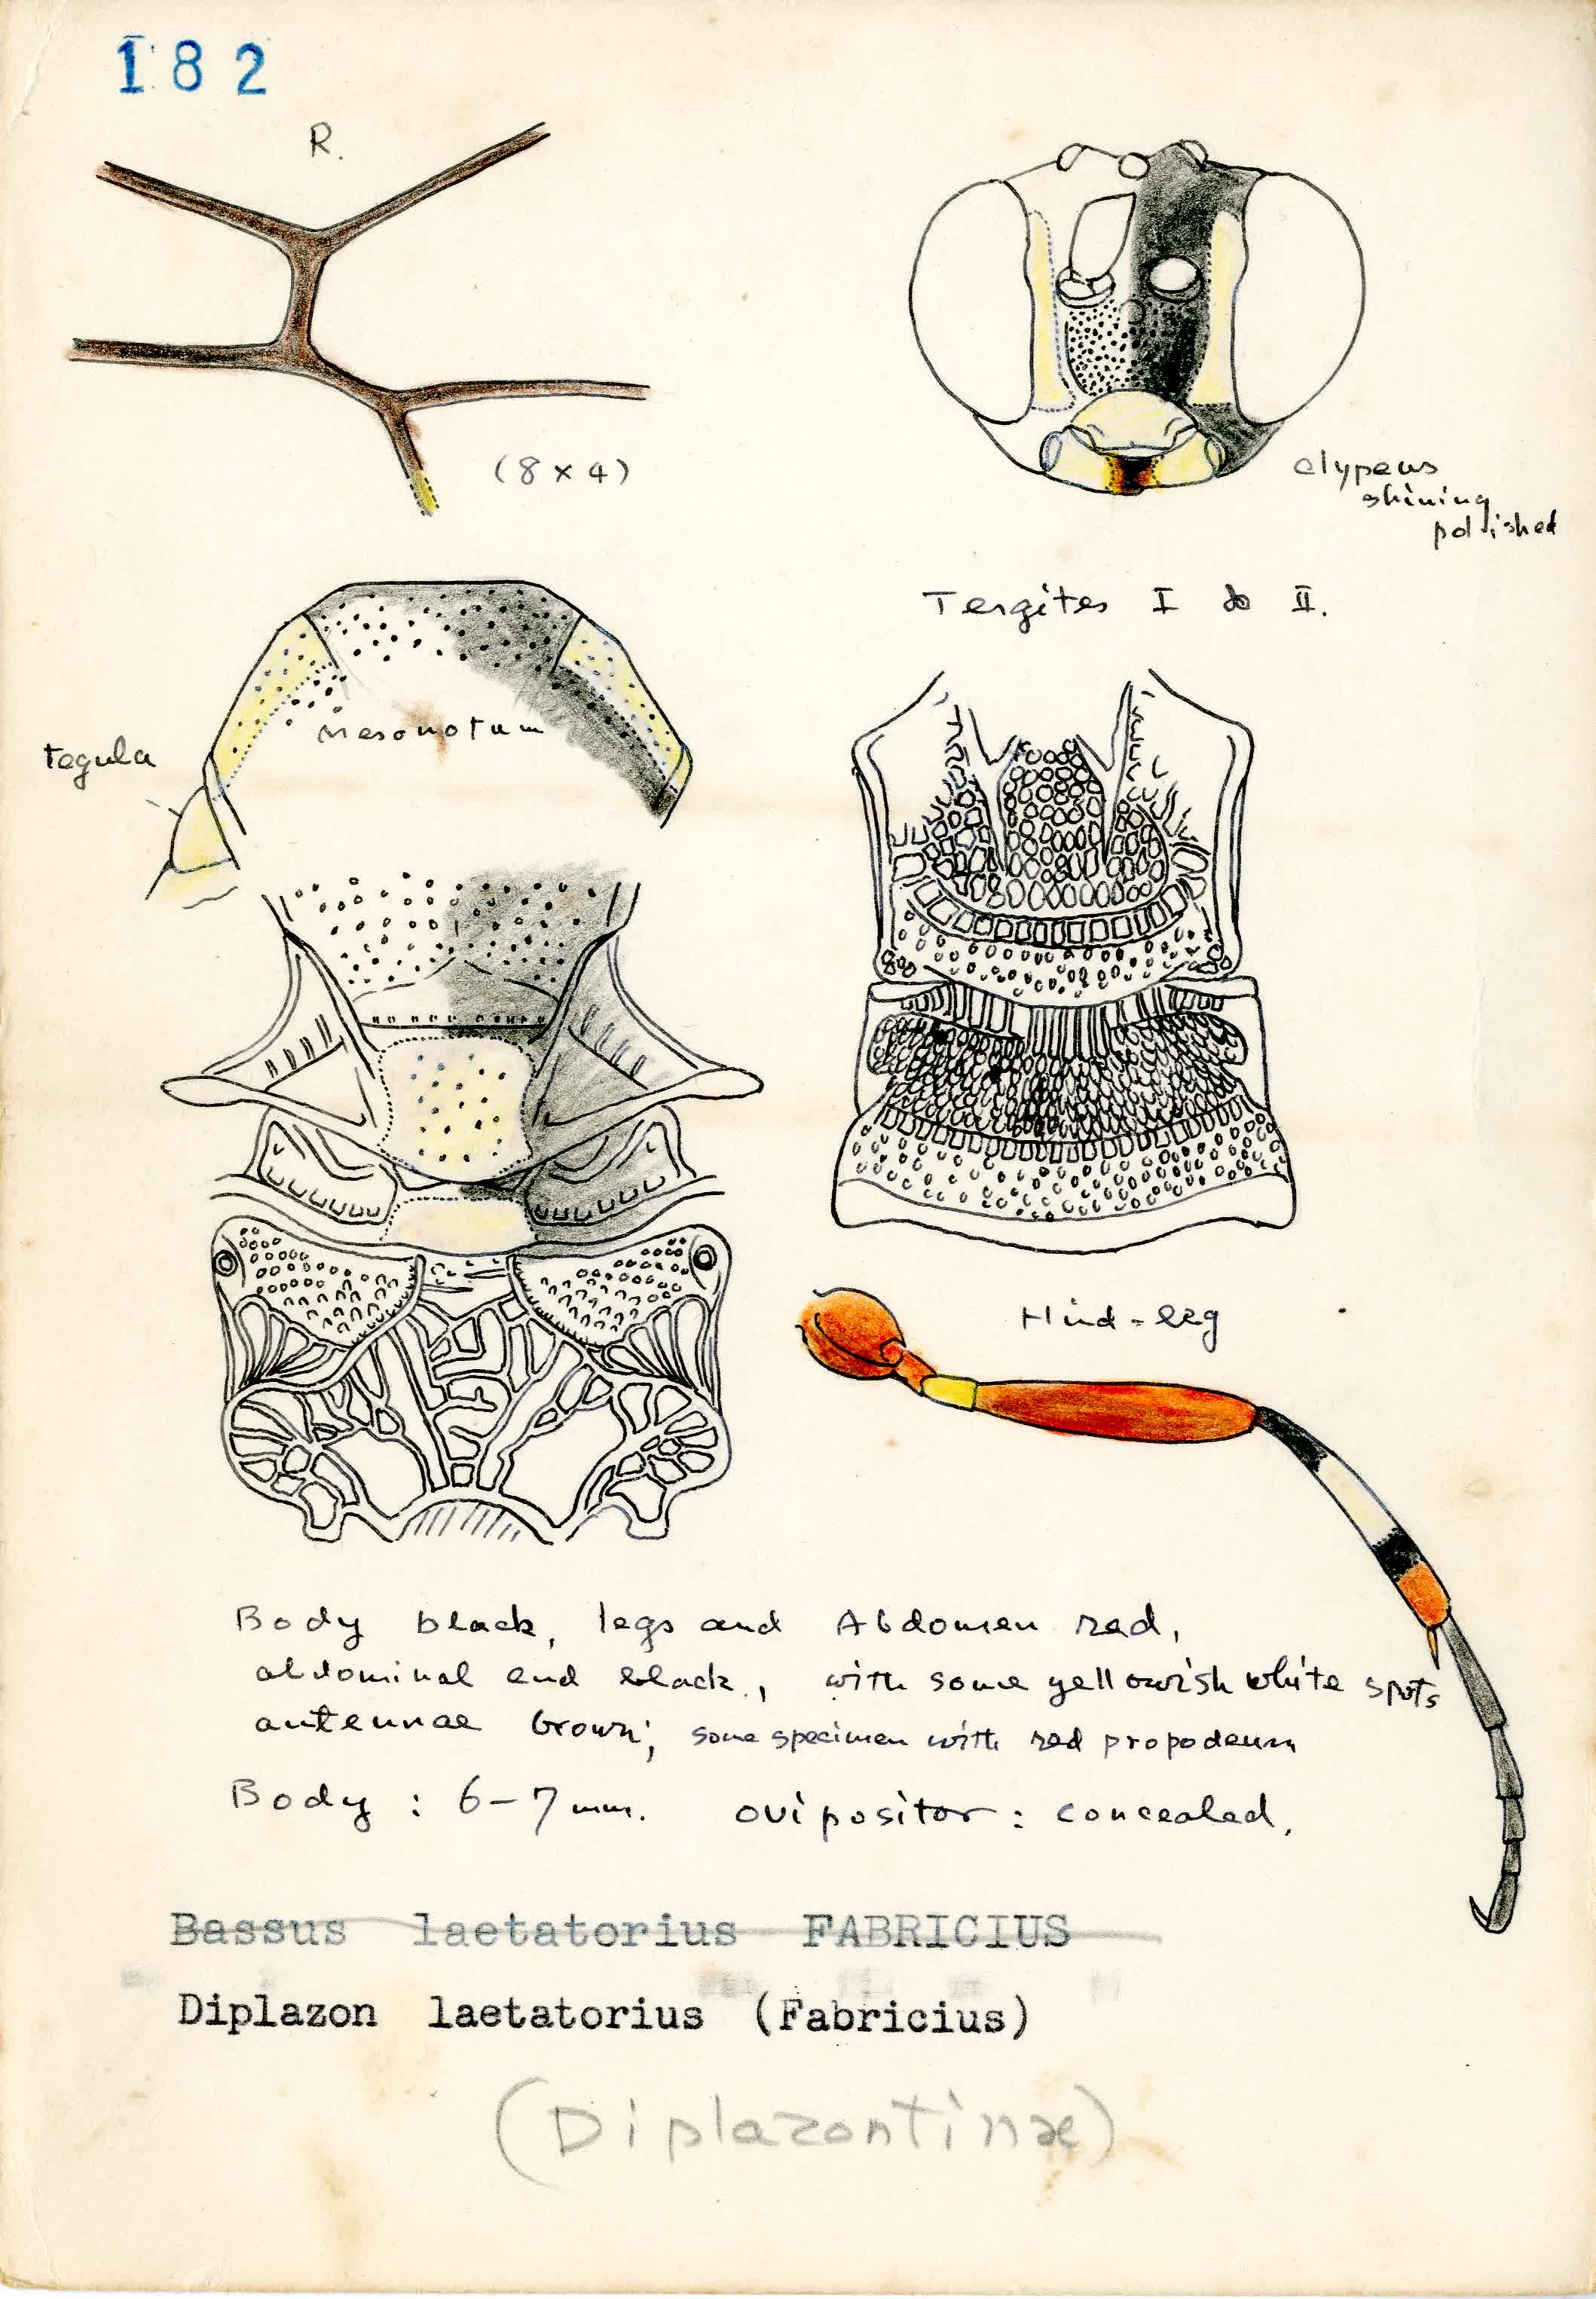 182
R.
(8 x 4)
clypeus
shining
polished
Tergites I & II.
mesonotum
tegula
Hind-leg
Body black, legs and Abdomen red,
abdominal end black, with some yellowish white spots
antennae brown; some specimen with red propodeum
Body : 6-7 mm. ovipositor : concealed.
Bassus laetatorius FABRICIUS
Diplazon laetatorius (Fabricius)
(Diplazontinae)